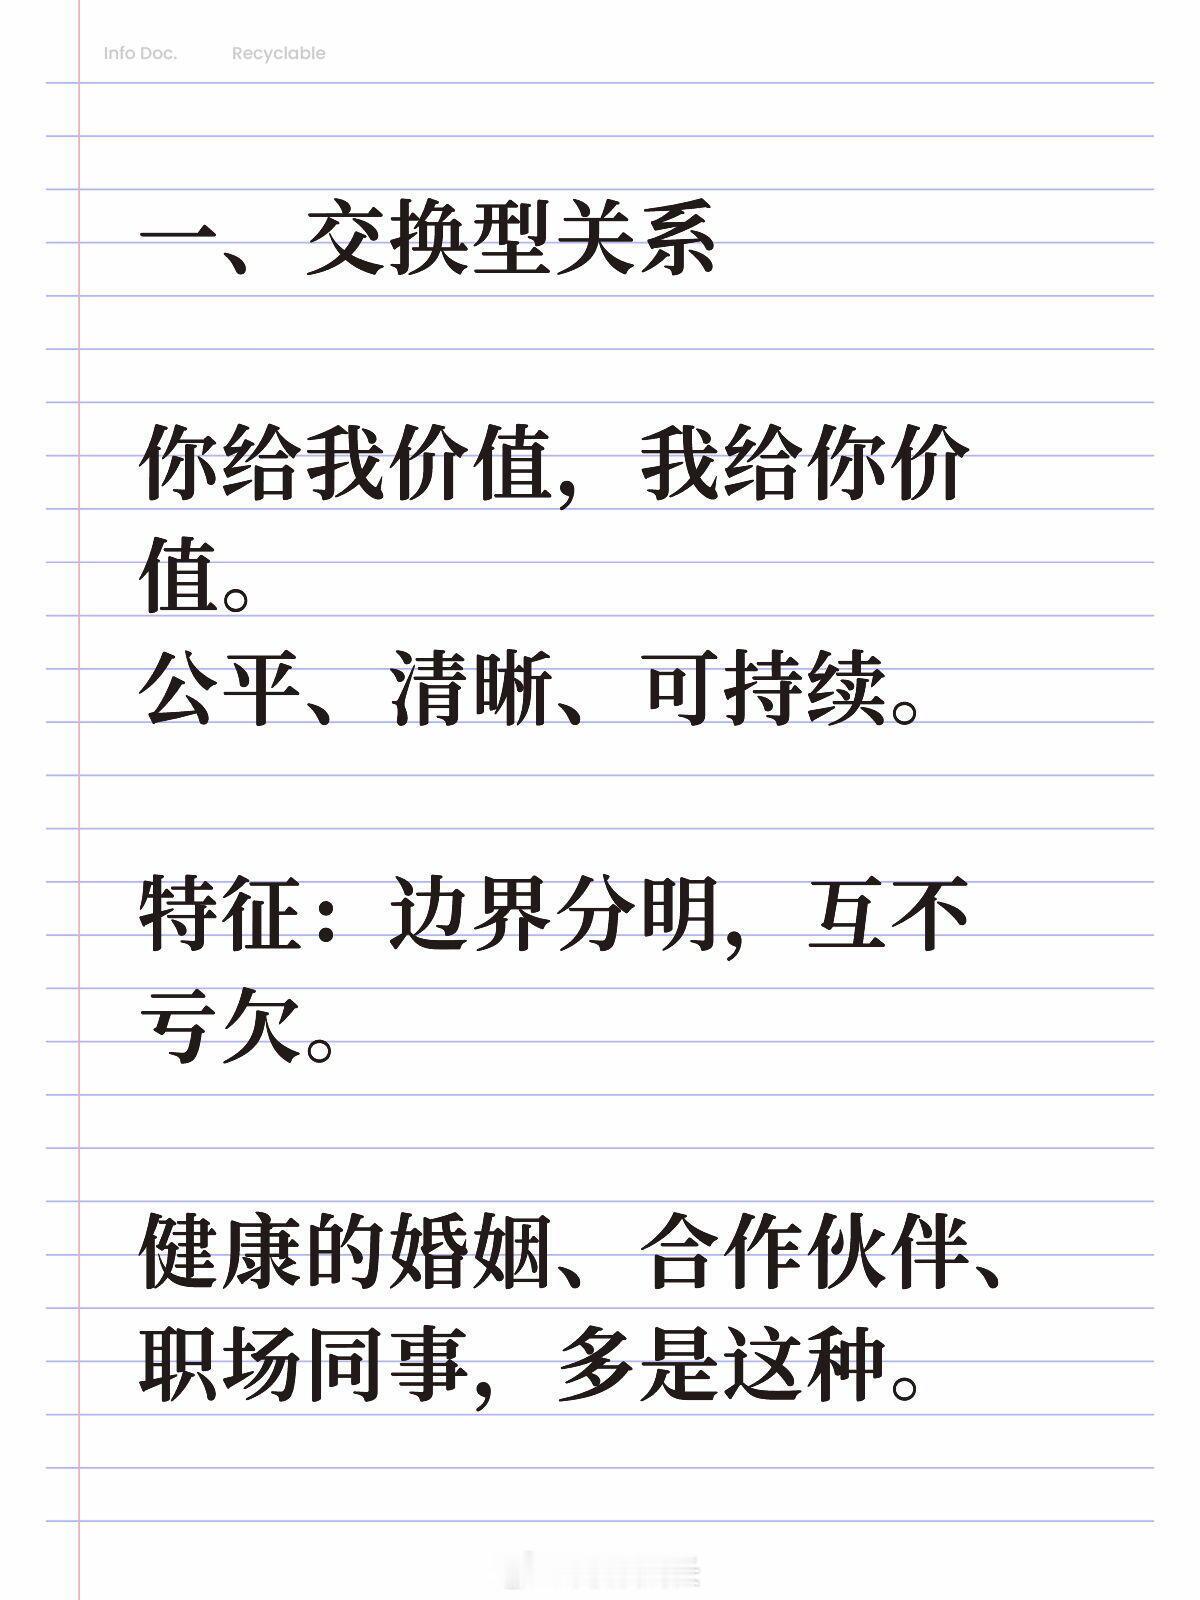 Info Doc. Recyclable
一、交换型关系
你给我价值，我给你价
值。
公平、清晰、可持续。
特征：边界分明，互不
亏欠。
健康的婚姻、合作伙伴、
职场同事，多是这种。